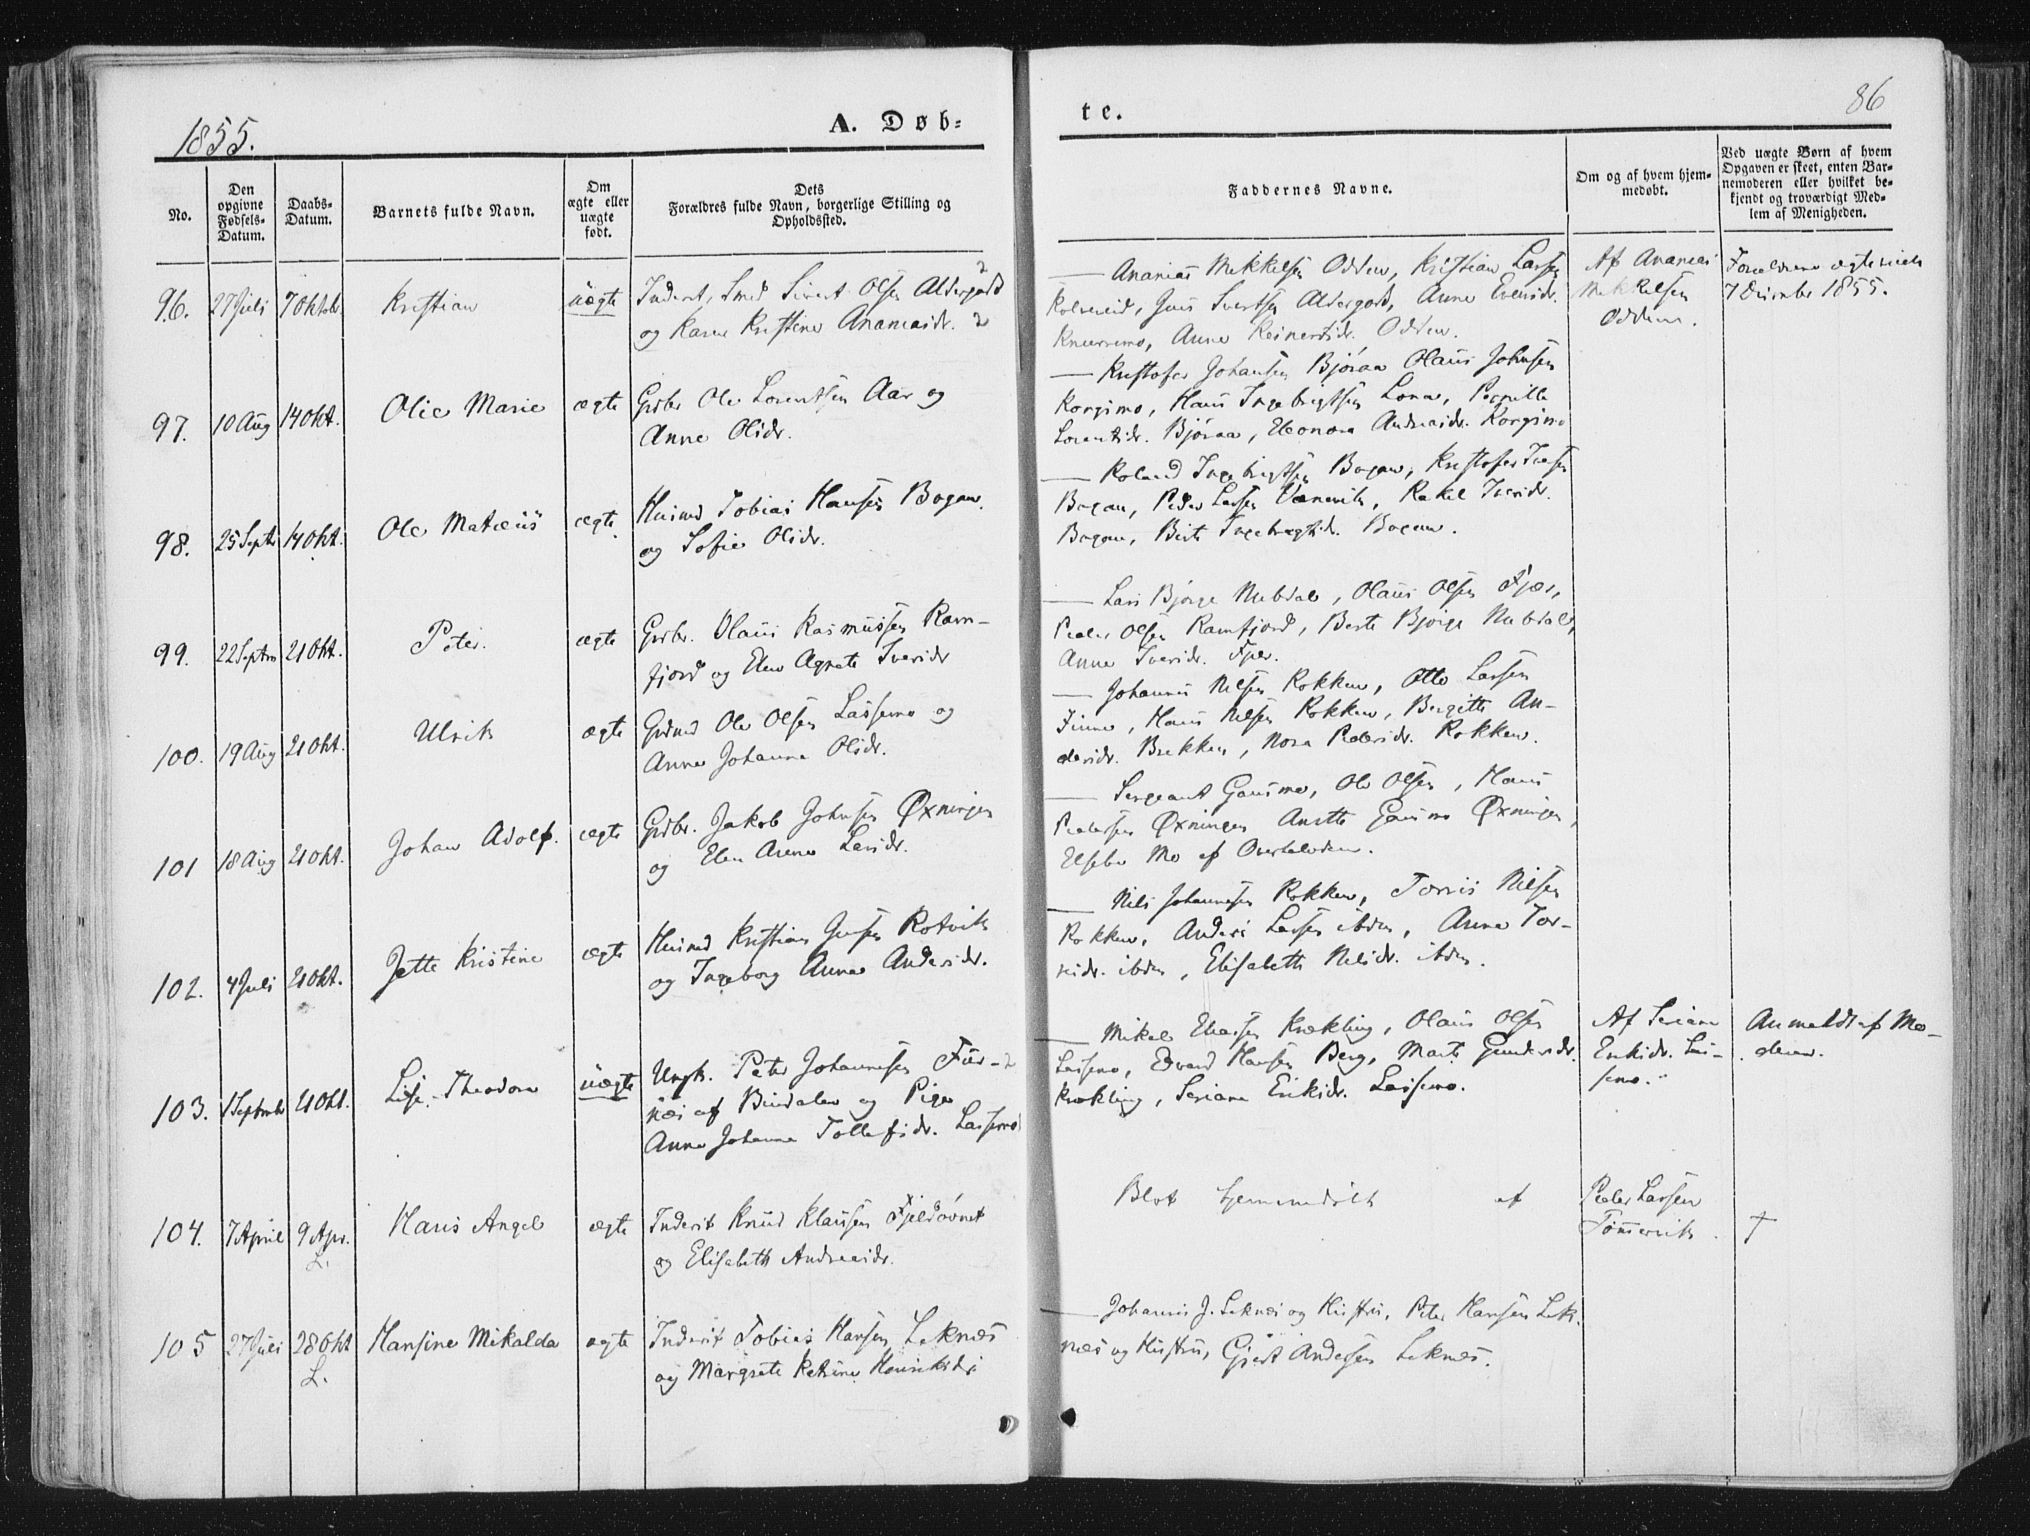 1855.
A. Døb-
te.
86
No.
Den
opgivne
Fødsels-
Datum.
Daabs-
Datum.
Barnets fulde Navn.
Om
ægte eller
uægte
født.
Dets
Forældres fulde Navn, borgerlige Stilling og
Opholdssted.
Faddernes Navne.
Om og af hvem hjem-
medøbt.
Ved uægte Børn af hvem
Opgaven er skeet, enten Bar-
nemoderen eller hvilket be-
kjendt og troværdigt Med-
lem af Menigheden.
96. 27 Juli 7 Oktob. Kristian uægte
Inderst, Smed Sivert Olsen Aldergard 2
og Karen Kristine Ananiasdr. 2
— Ananias Mikkelsen Odden, Kristian Larsen
Kolvereid, Jens Sivertsen Aldergard, Anne Evensdr.
Anne Reinertsdr. Odden.
Af Ananias
Mikkelsen
Odden.
Forældrene ægteviede
7 December 1855.
97. 10 Aug 14 Okt. Olie Marie ægte
Grdbr Ole Lorentsen Aar og
Anne Olsdr.
— Kristofer Johansen Bjøraa Olaus Johnsen
Kongsmo, Hans Ingebrigtsen Lona, Pernille
Lorentsdr. Bjøraa, Eleonora Andreasdr. Kongsmo
98. 25 Septb 14 Okt. Ole Mateus ægte
Husmd Tobias Hansen Bogan
og Sofie Olsdr.
— Roland Ingebrigtsen Bogan, Kristofer Iversen
Bogan, Peder Larsen Rakel Iversdr.
Bogan, Berit Ingebregtsdr. Bogan.
99. 22 Septbr 21 Okt. Peter. ægte
Grdbr. Olaus Rasmussen Ram-
fjord og Elen Agnete Iversdr
— Lars Bjørge Nubdal, Olaus Olsen Fjær,
Peder Olsen Ramfjord, Berte Bjørge Nubdal,
Anne Iversdr. Fjær.
100. 19 Aug 21 Okt. Ulrik ægte
Grdmd Ole Olsen Lassemo og
Anne Johanna Olsdr.
— Johannes Nilsen Rokken, Otto Larsen
Finne, Hans Nilsen Rokken, Bergitte An-
dersdr. Brekken, Nora Pedersdr. Rokken.
101 18 Aug 21 Okt. Johan Adolf. ægte
Grdbr. Jakob Johnsen Øxningen
og Elen Arene Larsdr.
— Sergeant Gansmo, Ole Olsen, Hans
Pedersen Øxningen Anette Gansmo Øxningen,
Elseba Mo af Overhalvden.
102. 4 Juli 21 Okt. Jette Kristine ægte
Husmd Kristian Jensen Rotvik
og Ingeborg Anne Andersdr.
— Nils Johannesen Rokken, Torris Nilsen
Rokken, Anders Larsen ibdm, Anne Tor-
risdr. ibdm, Elisabeth Nilsdr. ibdm.
103. 1 Septembr 21 Okt. Lise Theodora uægte
Ungk. Peter Johannesen Fur- 2
næs af Bindalen og Pige
Anne Johanna Tollefsdr. Lassemo
— Mikal Eliassen Krækling, Olaus Olsen
Lassemo, Edvard Hansen Berg, Marte Gundersdr.
Krækling, Seriane Eriksdr. Lassemo.
Af Seriane
Eriksdr. Las-
semo.
Anmeldt af Mo-
deren.
104. 7 April 9 Apr. Hans Angel ægte
L.
Inderst Knud Klausen Fjeldavnet
og Elisabeth Andreasdr.
Blot hjemmedøbt af
Peder Larsen
Tømmervik. †
105 27 Juli 28 Okt Hansine Mikalda ægte
L.
Inderst Tobias Hansen Leknæs
og Margrete Katrine Henriksdr.
— Johannes J. Leknæs og Hustru, Peter Hansen Lek-
næs og Hustru, Gjert Andersen Leknæs.